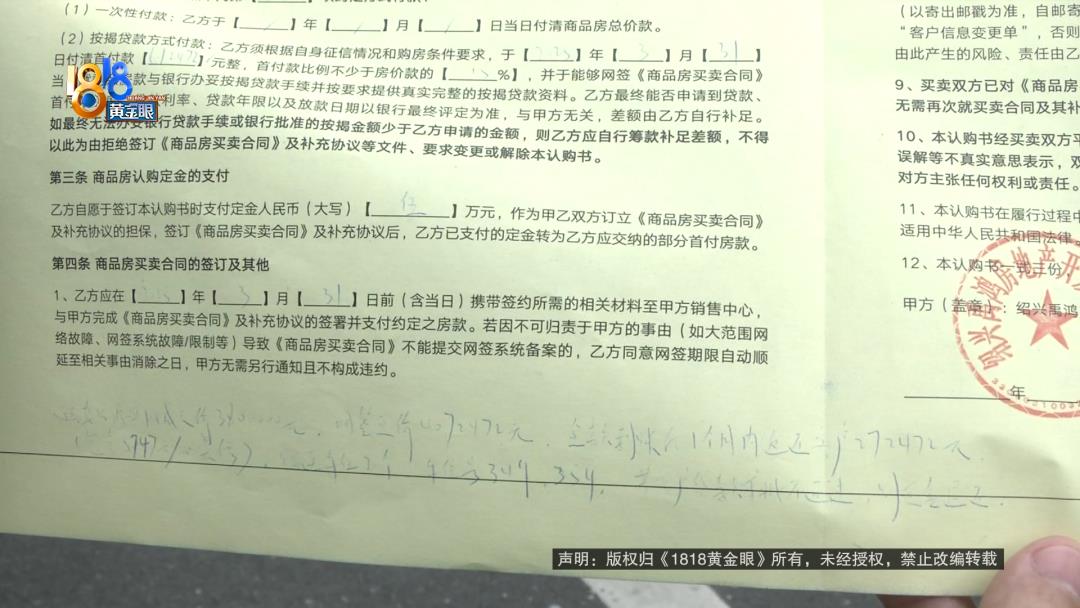 (1)一次性付款：乙方于【 】年【 】月【 】日当日付清商品房总价款。
(2)按揭贷款方式付款：乙方须根据自身征信情况和购房条件要求，于【 】年【3】月【31】
日付清首付款【 】元整，首付款比例不少于房价款的【 %】，并于能够网签《商品房买卖合同》
当 款与银行办妥按揭贷款手续并按要求提供真实完整的按揭贷款资料。乙方最终能否申请到贷款、
首付 利率、贷款年限以及放款日期以银行最终评定为准，与甲方无关，差额由乙方自行补足。
如最终无法办妥银行贷款手续或银行批准的按揭金额少于乙方申请的金额，则乙方应自行筹款补足差额，不得
以此为由拒绝签订《商品房买卖合同》及补充协议等文件、要求变更或解除本认购书。
第三条 商品房认购定金的支付
乙方自愿于签订本认购书时支付定金人民币（大写）【伍】万元，作为甲乙双方订立《商品房买卖合同》
及补充协议的担保，签订《商品房买卖合同》及补充协议后，乙方已支付的定金转为乙方应交纳的部分首付房款。
第四条 商品房买卖合同的签订及其他
1、乙方应在【 】年【3】月【31】日前（含当日）携带签约所需的相关材料至甲方销售中心，
与甲方完成《商品房买卖合同》及补充协议的签署并支付约定之房款。若因不可归责于甲方的事由（如大范围网
络故障、网签系统故障/限制等）导致《商品房买卖合同》不能提交网签系统备案的，乙方同意网签期限自动顺
延至相关事由消除之日，甲方无需另行通知且不构成违约。
元，网签总价4072472元，全款到账后1个月内返还 272472元
349、354，
（以寄出邮戳为准，自邮寄
“客户信息变更单”，否则
由此产生的风险、责任由乙
9、买卖双方已对《商品房
无需再次就买卖合同及其补
10、本认购书经买卖双方平
误解等不真实意思表示，双
对方主张任何权利或责任。
11、本认购书在履行过程中
适用中华人民共和国法律
12、本认购书一式三份
甲方（盖章）：绍兴禹鸿
年
绍兴禹鸿房地产开
1818
黄金眼
声明：版权归《1818黄金眼》所有，未经授权，禁止改编转载